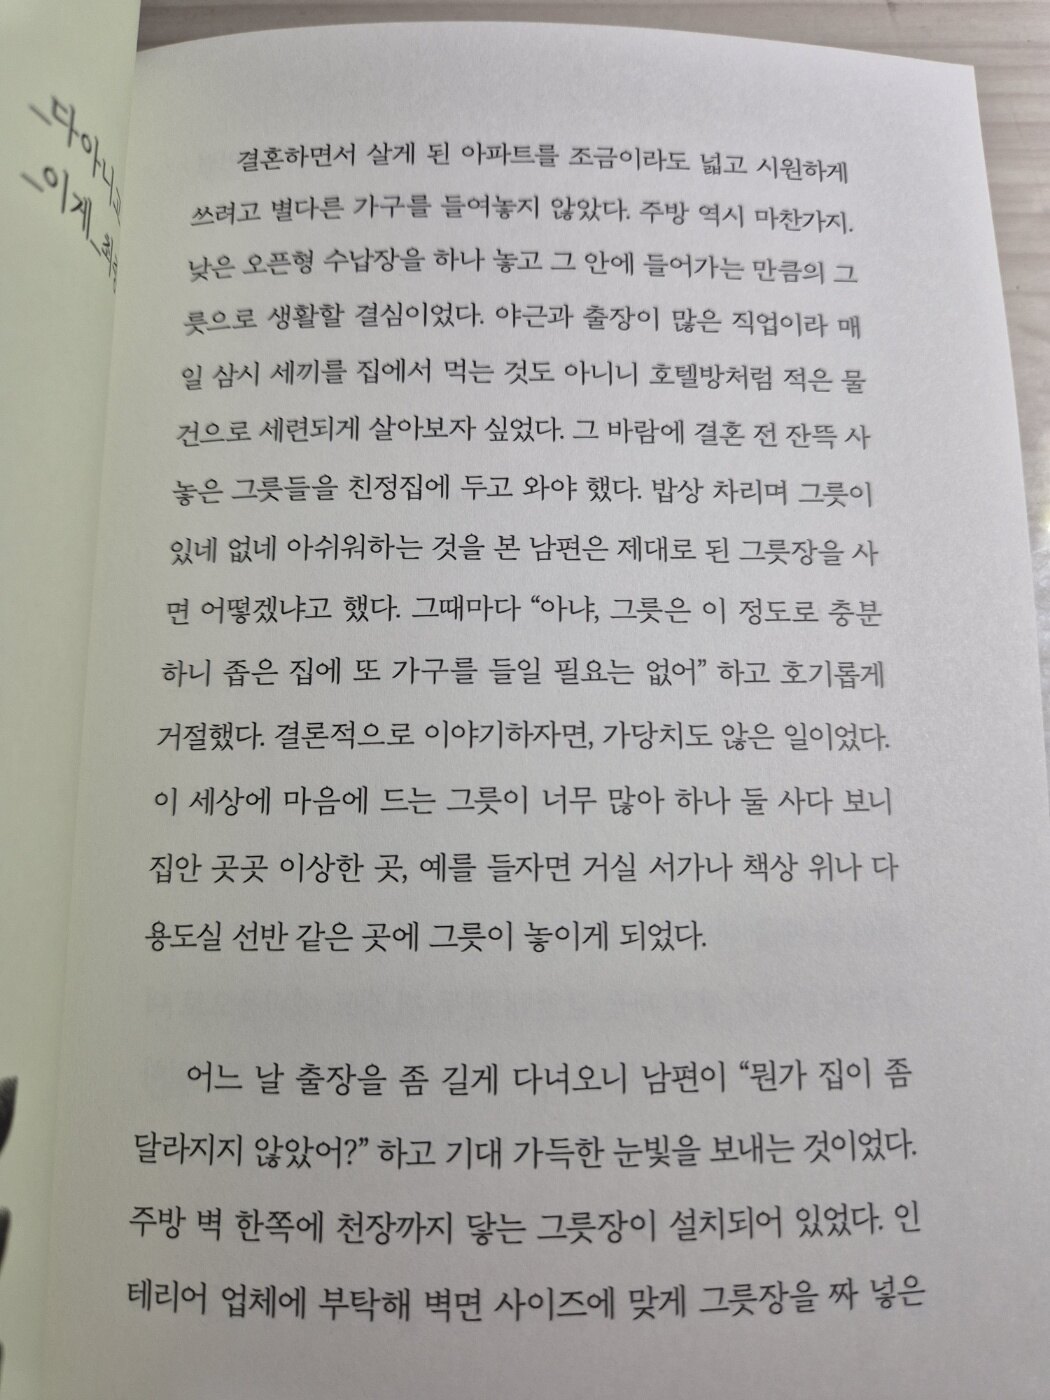 다아니
이게
결혼하면서 살게 된 아파트를 조금이라도 넓고 시원하게
쓰려고 별다른 가구를 들여놓지 않았다. 주방 역시 마찬가지.
낮은 오픈형 수납장을 하나 놓고 그 안에 들어가는 만큼의 그
릇으로 생활할 결심이었다. 야근과 출장이 많은 직업이라 매
일 삼시 세끼를 집에서 먹는 것도 아니니 호텔방처럼 적은 물
건으로 세련되게 살아보자 싶었다. 그 바람에 결혼 전 잔뜩 사
놓은 그릇들을 친정집에 두고 와야 했다. 밥상 차리며 그릇이
있네 없네 아쉬워하는 것을 본 남편은 제대로 된 그릇장을 사
면 어떻겠냐고 했다. 그때마다 “아냐, 그릇은 이 정도로 충분
하니 좁은 집에 또 가구를 들일 필요는 없어” 하고 호기롭게
거절했다. 결론적으로 이야기하자면, 가당치도 않은 일이었다.
이 세상에 마음에 드는 그릇이 너무 많아 하나 둘 사다 보니
집안 곳곳 이상한 곳, 예를 들자면 거실 서가나 책상 위나 다
용도실 선반 같은 곳에 그릇이 놓이게 되었다.
어느 날 출장을 좀 길게 다녀오니 남편이 “뭔가 집이 좀
달라지지 않았어?” 하고 기대 가득한 눈빛을 보내는 것이었다.
주방 벽 한쪽에 천장까지 닿는 그릇장이 설치되어 있었다. 인
테리어 업체에 부탁해 벽면 사이즈에 맞게 그릇장을 짜 넣은